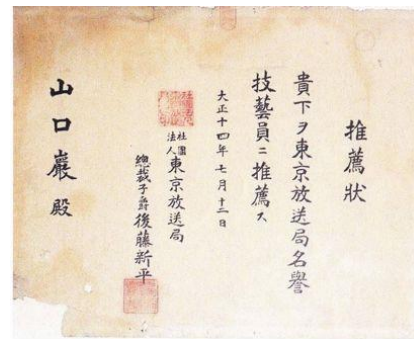 推薦状
貴下ヲ東京放送局名譽
技藝員ニ推薦ス
大正十四年七月十二日
社團法人東京放送局
總裁子爵後藤新平
山口巖殿